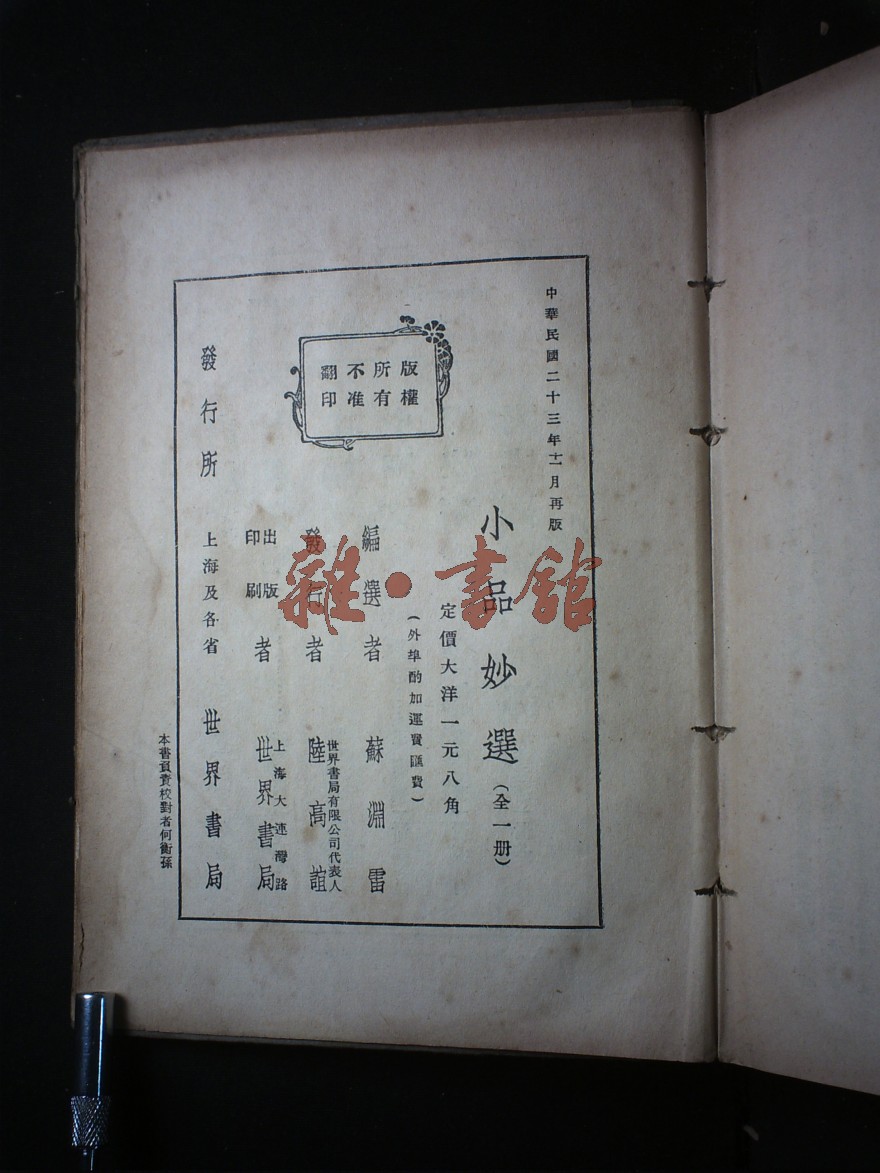 中華民國二十三年十一月再版
小品妙選(全一册)
定價大洋一元八角
(外埠酌加運費匯費)
版權
所有
不准
翻印
編選者 蘇淵雷
發行者 世界書局有限公司代表人 陸高誼
出版
印刷
者 上海大連灣路 世界書局
發行所 上海及各省 世界書局
本書負責校對者何衡孫
雜·書館